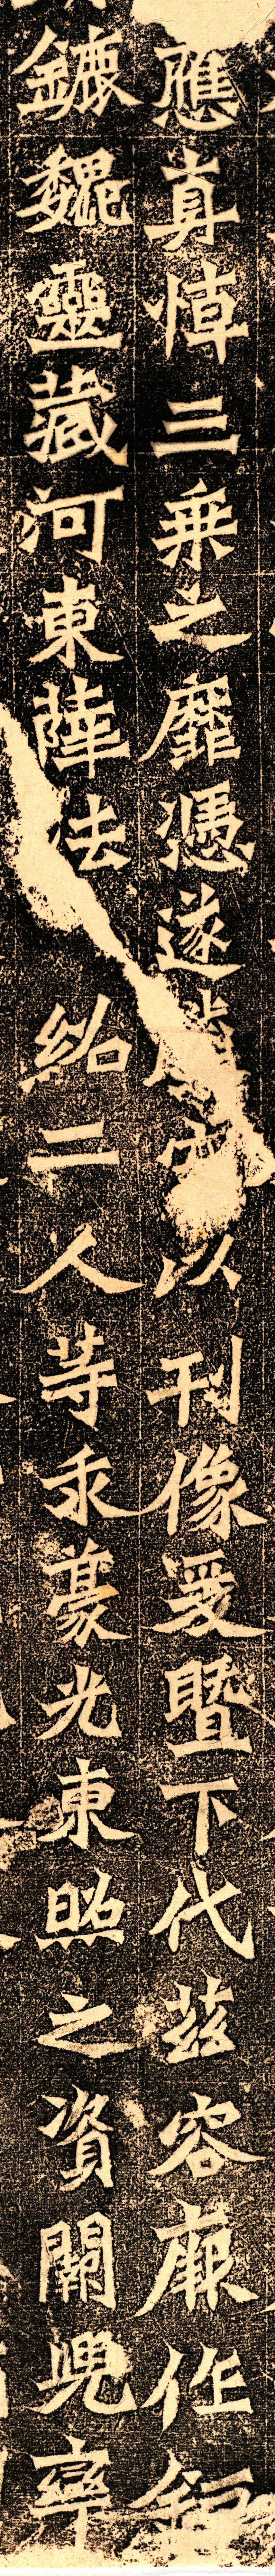 應真悼三乘之靡憑遂以刊像爰暨下代茲容厥作鉅
鏕魏靈藏河東薛法紹二人等求豪光東照之資闕兜率